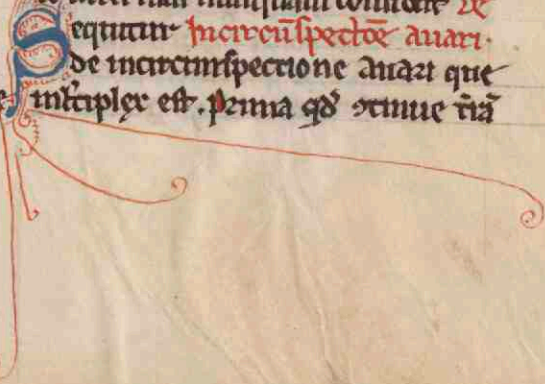 de
Sequitur Incircūspectōe auari.
de incircumspectione auari que
mltiplex est. prima qđ ꝯtinue t̄rā